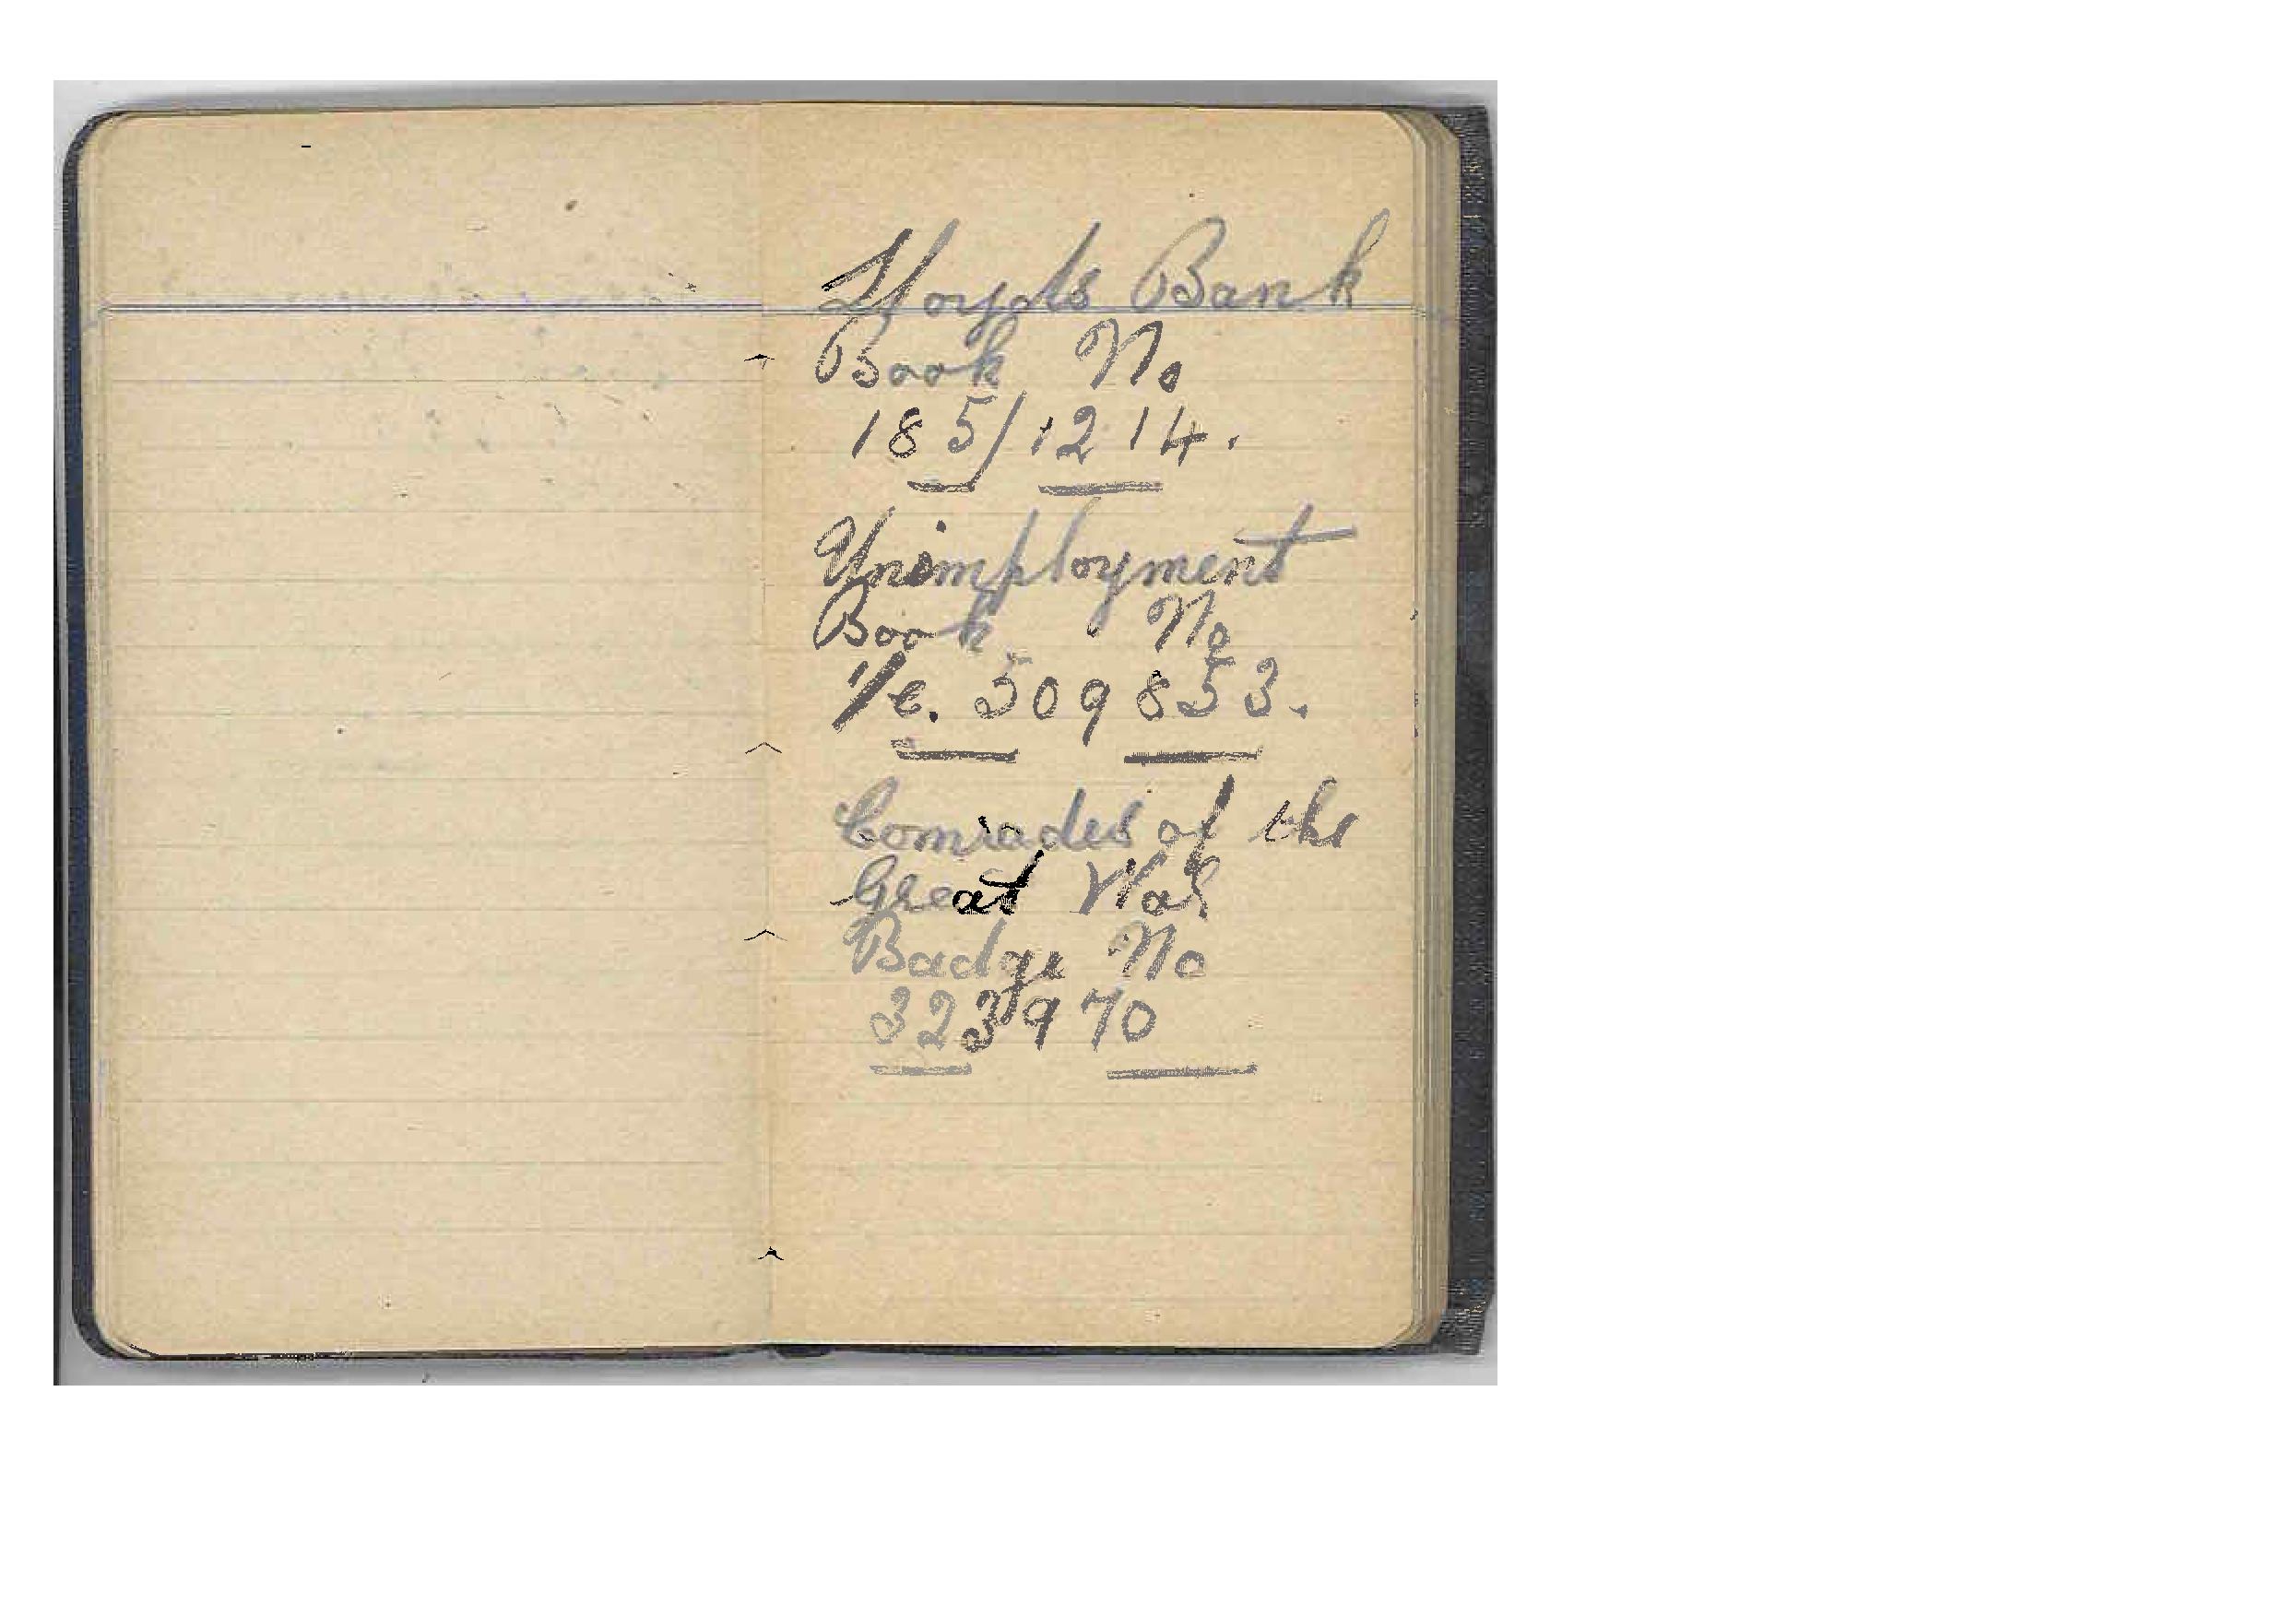 Lloyds Bank
Book No
185/1214.
Unimployment
Book No
1/c. 509853.
Comrades of the
Great War
Badge No
323970